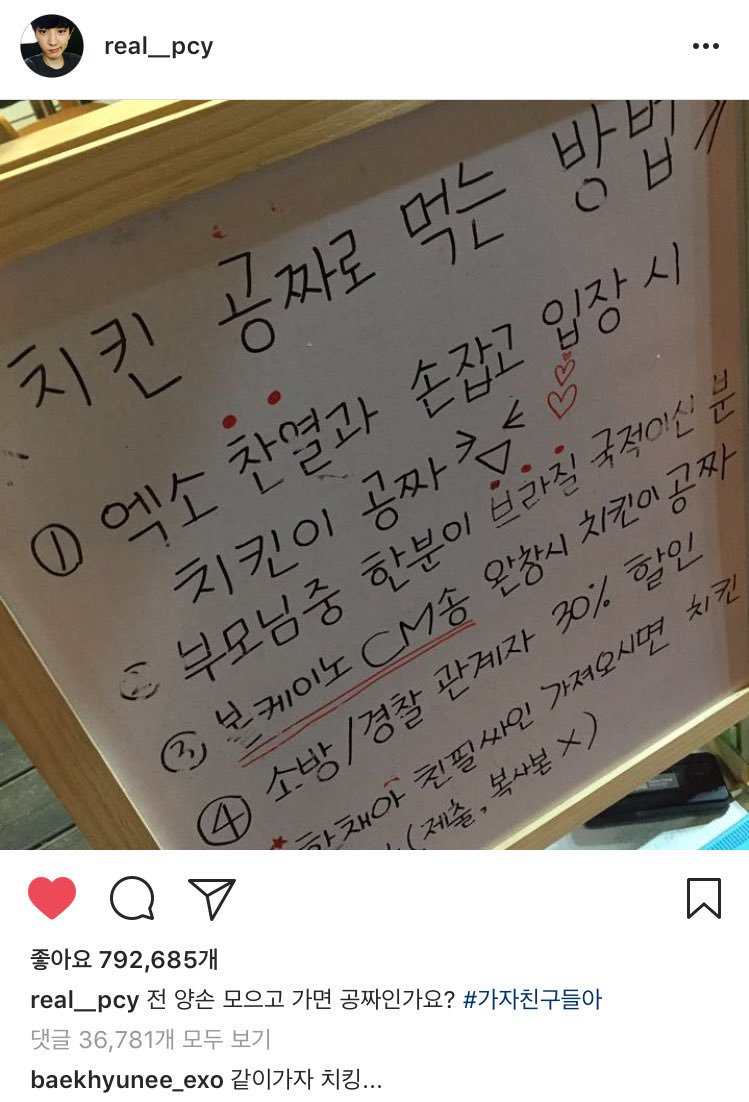 real__pcy
치킨 공짜로 먹는 방법
① 엑소 찬열과 손잡고 입장 시
치킨이 공짜
② 부모님중 한분이 브라질 국적이신 분
③ 본케이노 CM송 완창시 치킨이 공짜
④ 소방/경찰 관계자 30% 할인
한채아 친필싸인 가져오시면 치킨
(제출, 복사본 X)
좋아요 792,685개
real__pcy 전 양손 모으고 가면 공짜인가요? #가자친구들아
댓글 36,781개 모두 보기
baekhyunee_exo 같이가자 치킹...